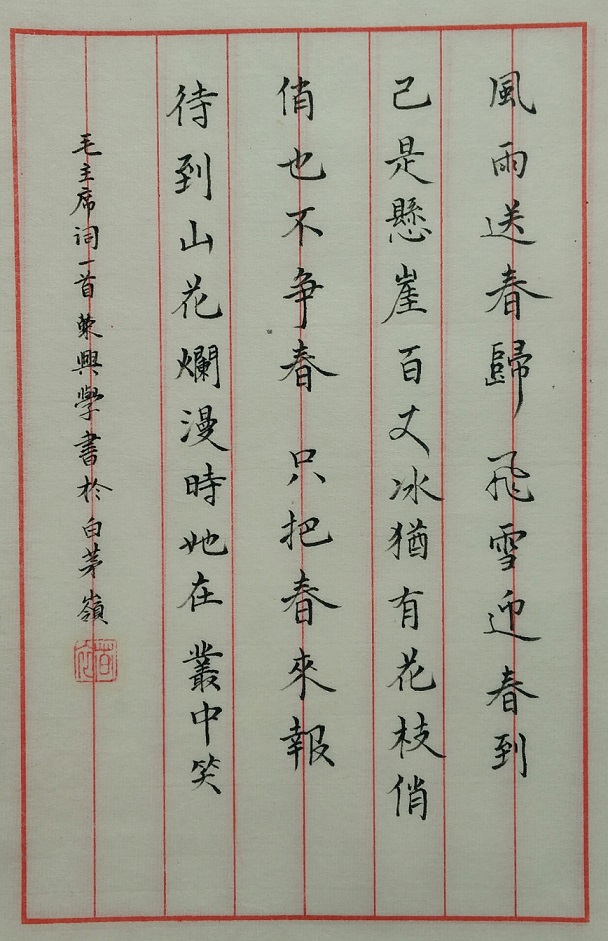 風雨送春歸飛雪迎春到
已是懸崖百丈冰猶有花枝俏
俏也不争春只把春來報
待到山花爛漫時她在叢中笑
毛主席词一首 興學書於白茅嶺